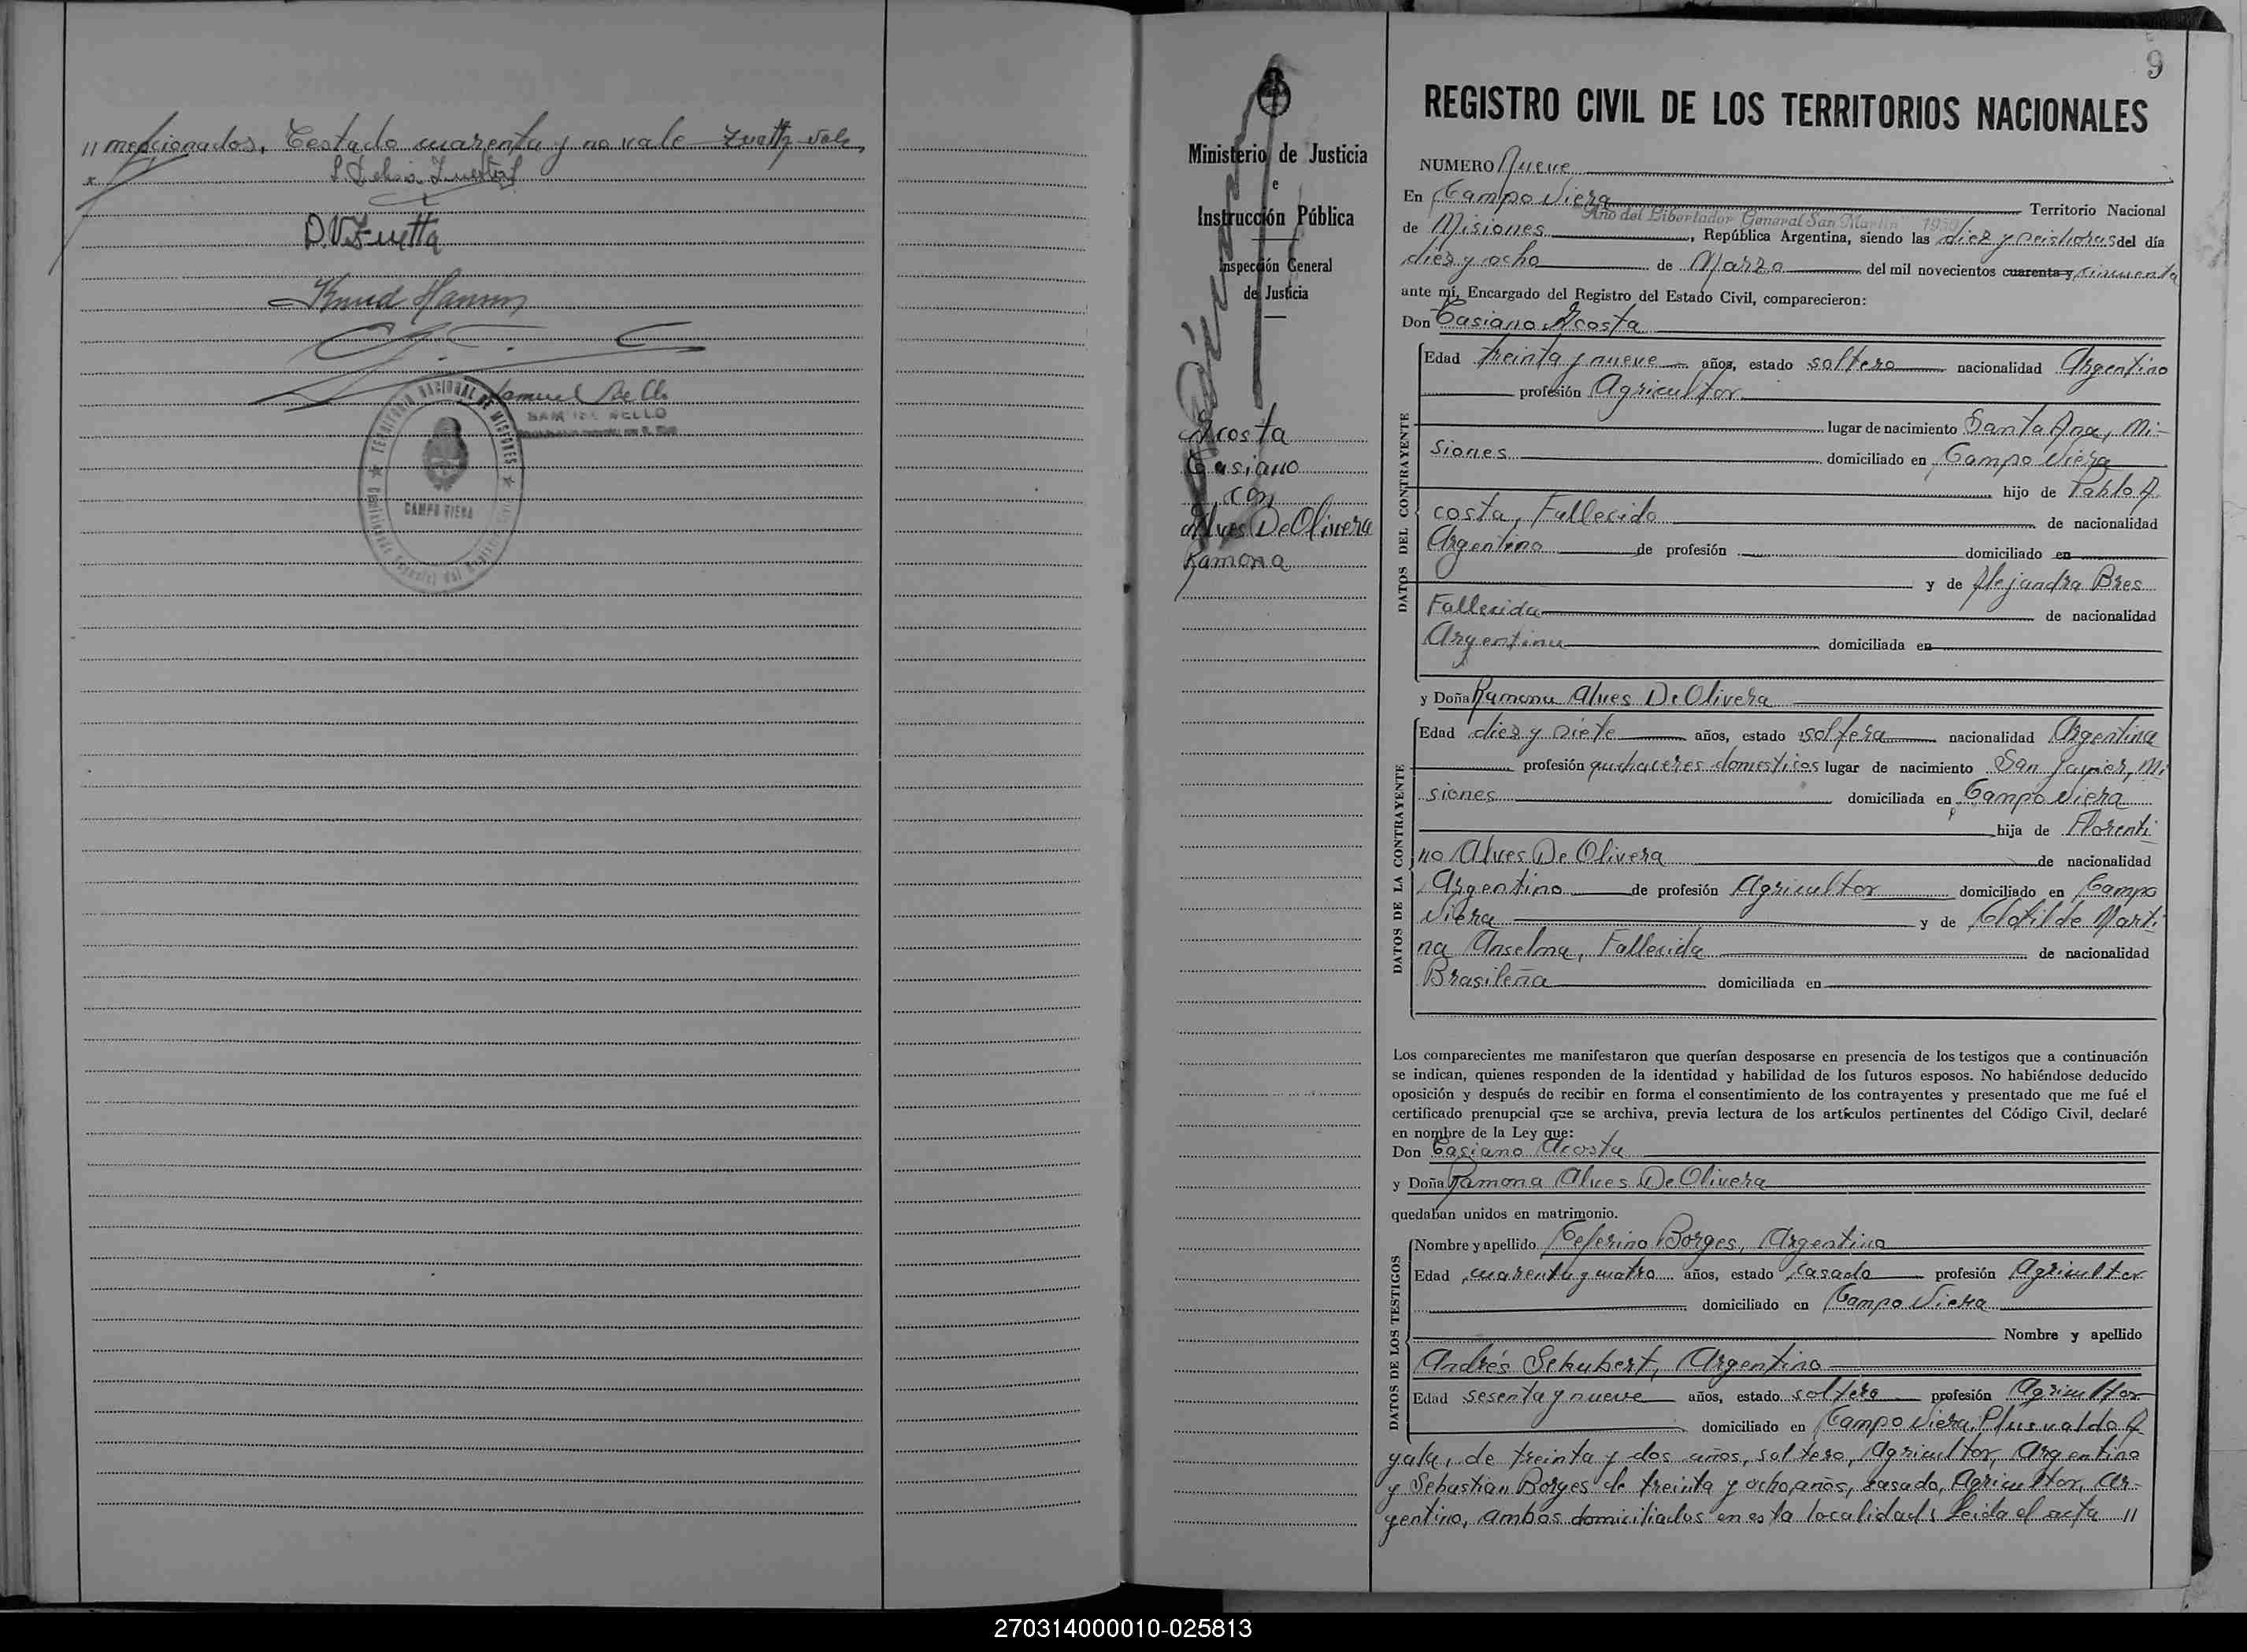 // mencionados. Testado cuarenta y no vale Zuetta vale
D. V. Zuetta
Knud Hansen
Samuel Bello
SAMUEL BELLO
TERRITORIO NACIONAL DE MISIONES
CAMPO VIERA
9
Ministerio de Justicia
e
Instrucción Pública
Inspección General
de Justicia
Acosta
Casiano
con
Alves De Olivera
Ramona
REGISTRO CIVIL DE LOS TERRITORIOS NACIONALES
NUMERO Nueve
En Campo Viera Territorio Nacional
"Año del Libertador General San Martín" 1950
de Misiones, República Argentina, siendo las diez y seis horas del día
diez y ocho de Marzo del mil novecientos cuarenta y cincuenta
ante mí, Encargado del Registro del Estado Civil, comparecieron:
Don Casiano Acosta
DATOS DEL CONTRAYENTE
Edad treinta y nueve años, estado soltero nacionalidad Argentino
profesión Agricultor
lugar de nacimiento Santa Ana, Mi-
siones domiciliado en Campo Viera
hijo de Pablo A
costa, Fallecido de nacionalidad
Argentino de profesión domiciliado en
y de Alejandra Bres
Fallecida de nacionalidad
Argentina domiciliada en
y Doña Ramona Alves De Olivera
DATOS DE LA CONTRAYENTE
Edad diez y siete años, estado soltera nacionalidad Argentina
profesión quehaceres domesticos lugar de nacimiento San Javier, Mi
siones domiciliada en Campo Viera
hija de Florenti
no Alves De Olivera de nacionalidad
Argentino de profesión Agricultor domiciliado en Campo
Viera y de Clotilde Marti
na Anselma, Fallecida de nacionalidad
Brasileña domiciliada en
Los comparecientes me manifestaron que querían desposarse en presencia de los testigos que a continuación
se indican, quienes responden de la identidad y habilidad de los futuros esposos. No habiéndose deducido
oposición y después de recibir en forma el consentimiento de los contrayentes y presentado que me fué el
certificado prenupcial que se archiva, previa lectura de los artículos pertinentes del Código Civil, declaré
en nombre de la Ley que:
Don Casiano Acosta
y Doña Ramona Alves De Olivera
quedaban unidos en matrimonio.
DATOS DE LOS TESTIGOS
Nombre y apellido Ceferino Borges, Argentino
Edad cuarenta y cuatro años, estado casado profesión Agricultor
domiciliado en Campo Viera
Nombre y apellido
Andrés Schubert, Argentino
Edad sesenta y nueve años, estado soltero profesión Agricultor
domiciliado en Campo Viera, Plusvaldo A
yala, de treinta y dos años, soltero, Agricultor, Argentino
y Sebastian Borges de treinta y ocho años, casado, Agricultor, Ar-
gentino, ambos domiciliados en esta localidad, Leida el acta //
270314000010-025813